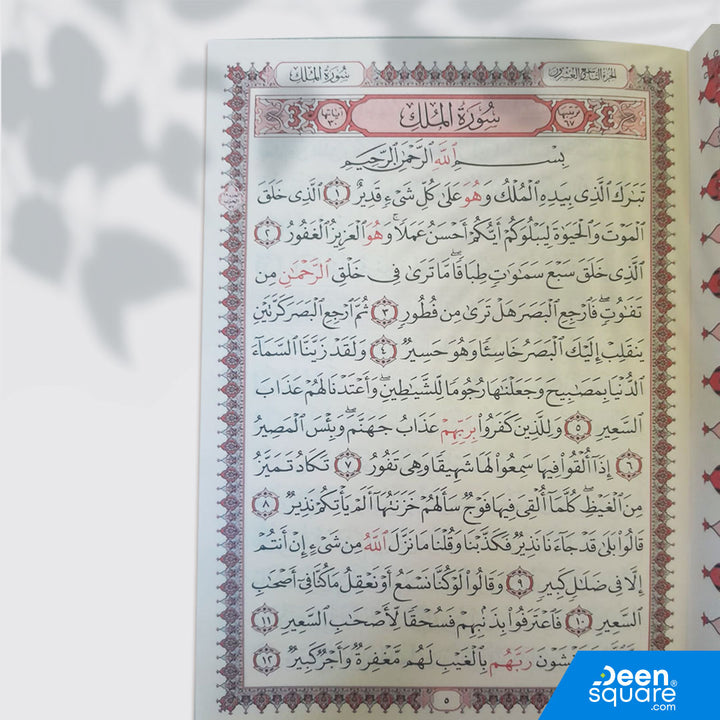 سُورَةُ المُلْكِ الجُزءُ التَّاسِعُ وَالعِشْرُونَ
آيَاتُهَا ٣٠ سُورَةُ المُلْكِ تَرْتِيبُهَا ٦٧
بِسْمِ اللَّهِ الرَّحْمَٰنِ الرَّحِيمِ
تَبَٰرَكَ الَّذِى بِيَدِهِ الْمُلْكُ وَهُوَ عَلَىٰ كُلِّ شَىْءٍ قَدِيرٌ ١ الَّذِى خَلَقَ
الْمَوْتَ وَالْحَيَوٰةَ لِيَبْلُوَكُمْ أَيُّكُمْ أَحْسَنُ عَمَلًاۚ وَهُوَ الْعَزِيزُ الْغَفُورُ ٢
الَّذِى خَلَقَ سَبْعَ سَمَٰوَٰتٍ طِبَاقًاۖ مَّا تَرَىٰ فِى خَلْقِ الرَّحْمَٰنِ مِن
تَفَٰوُتٍۖ فَارْجِعِ الْبَصَرَ هَلْ تَرَىٰ مِن فُطُورٍ ٣ ثُمَّ ارْجِعِ الْبَصَرَ كَرَّتَيْنِ
يَنقَلِبْ إِلَيْكَ الْبَصَرُ خَاسِئًا وَهُوَ حَسِيرٌ ٤ وَلَقَدْ زَيَّنَّا السَّمَآءَ
الدُّنْيَا بِمَصَٰبِيحَ وَجَعَلْنَٰهَا رُجُومًا لِّلشَّيَٰطِينِۖ وَأَعْتَدْنَا لَهُمْ عَذَابَ
السَّعِيرِ ٥ وَلِلَّذِينَ كَفَرُوا۟ بِرَبِّهِمْ عَذَابُ جَهَنَّمَۖ وَبِئْسَ الْمَصِيرُ
٦ إِذَآ أُلْقُوا۟ فِيهَا سَمِعُوا۟ لَهَا شَهِيقًا وَهِىَ تَفُورُ ٧ تَكَادُ تَمَيَّزُ
مِنَ الْغَيْظِۖ كُلَّمَآ أُلْقِىَ فِيهَا فَوْجٌ سَأَلَهُمْ خَزَنَتُهَآ أَلَمْ يَأْتِكُمْ نَذِيرٌ ٨
قَالُوا۟ بَلَىٰ قَدْ جَآءَنَا نَذِيرٌ فَكَذَّبْنَا وَقُلْنَا مَا نَزَّلَ اللَّهُ مِن شَىْءٍ إِنْ أَنتُمْ
إِلَّا فِى ضَلَٰلٍ كَبِيرٍ ٩ وَقَالُوا۟ لَوْ كُنَّا نَسْمَعُ أَوْ نَعْقِلُ مَا كُنَّا فِىٓ أَصْحَٰبِ
السَّعِيرِ ١٠ فَاعْتَرَفُوا۟ بِذَنۢبِهِمْ فَسُحْقًا لِّأَصْحَٰبِ السَّعِيرِ ١١
رَبَّهُم بِالْغَيْبِ لَهُم مَّغْفِرَةٌ وَأَجْرٌ كَبِيرٌ ١٢
٥
Deen
square
.com